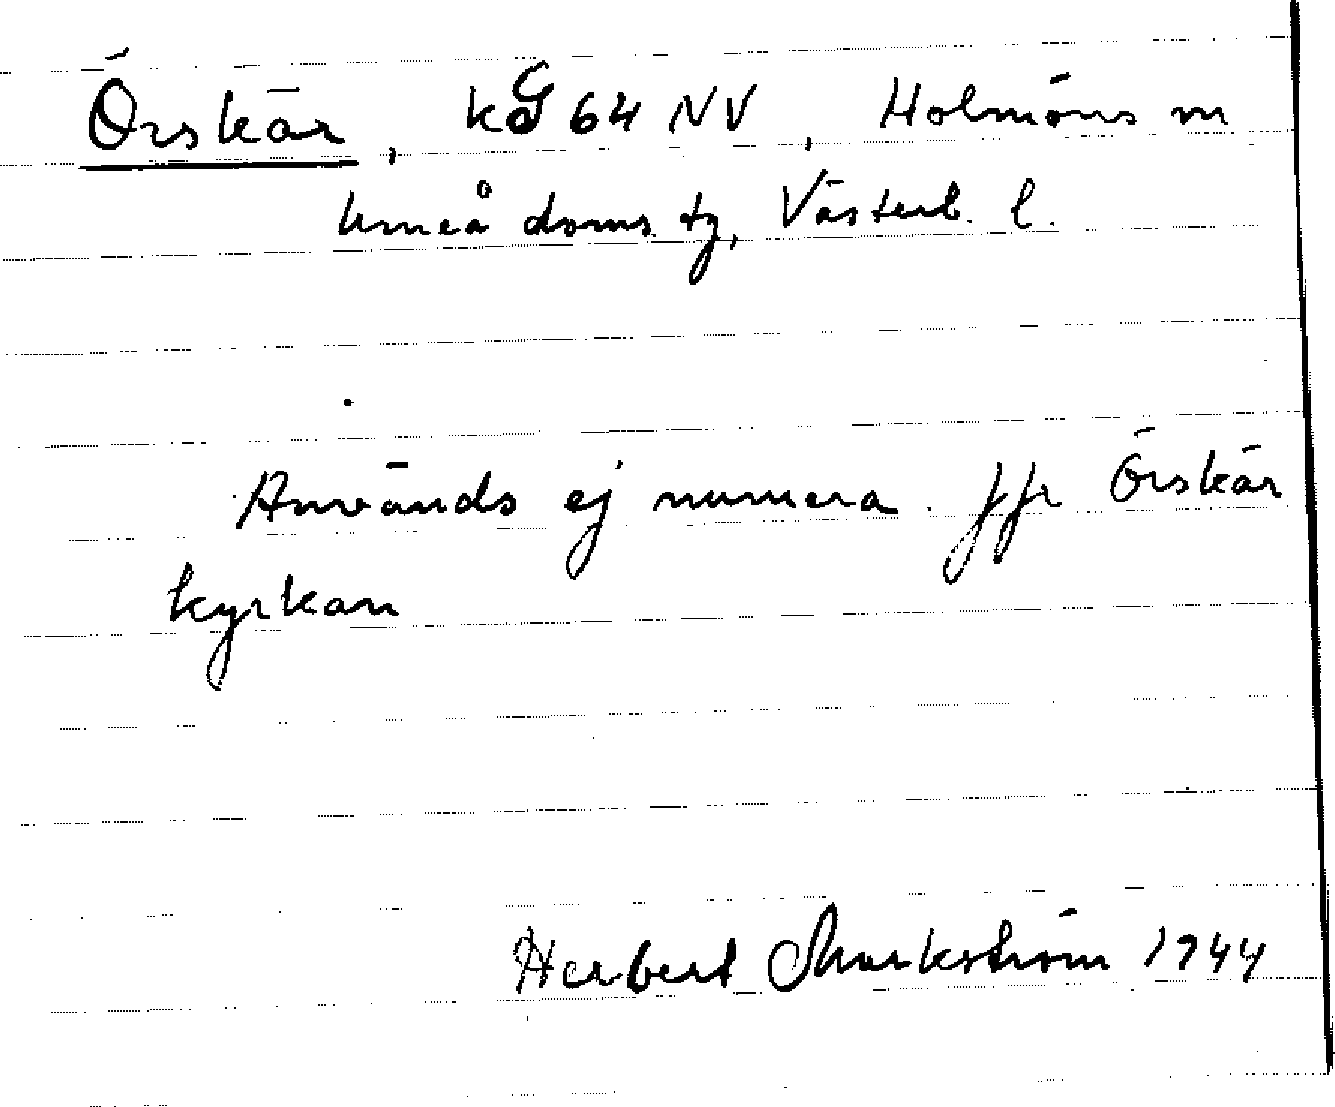 Örskär, kG 64 NV, Holmöns m
Umeå doms. tg, Västerb. l.
Används ej numera. Jfr Örskär
kyrkan
Herbert Markström 1944